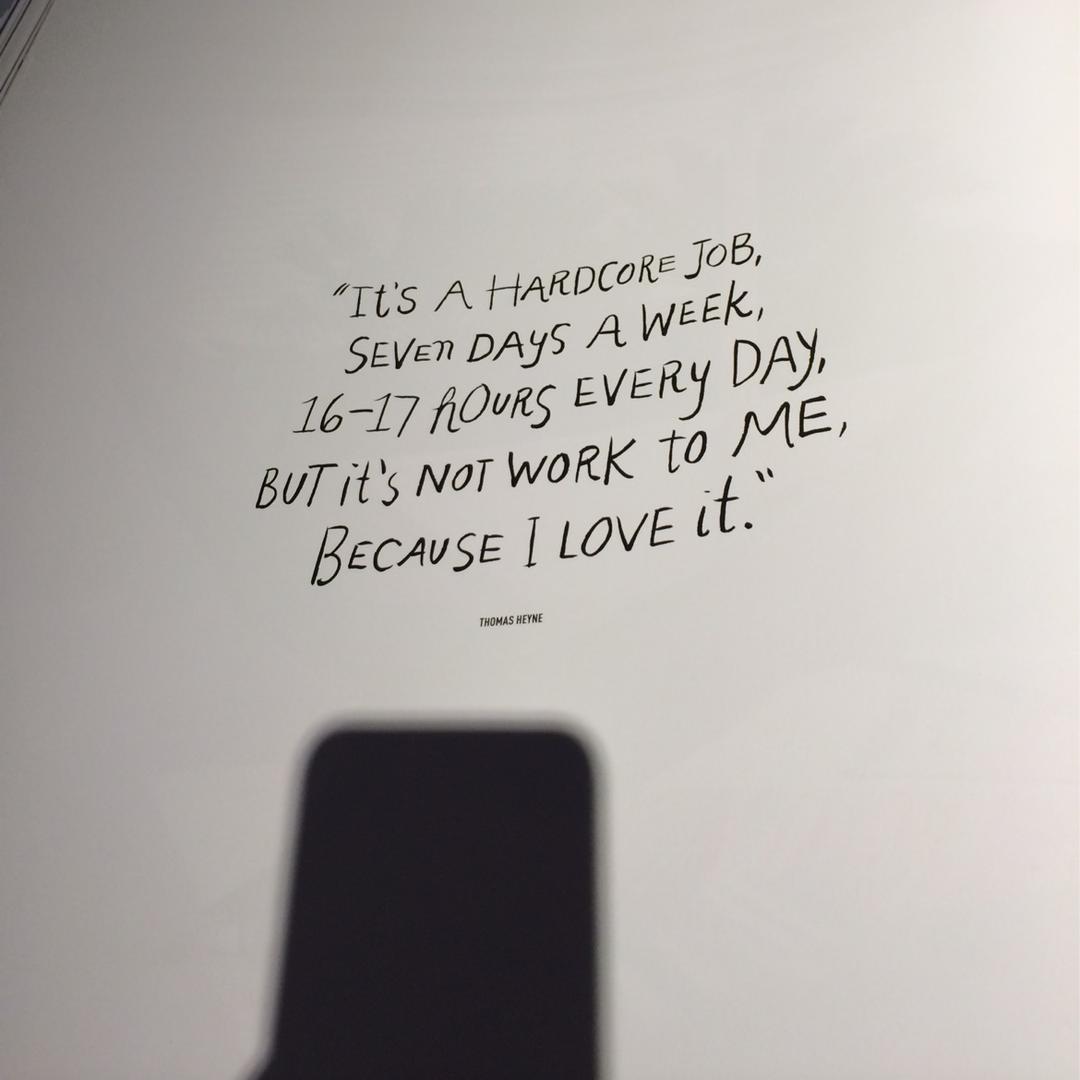 "It's A HARDCORE JOB,
SEVEn DAYS A WEEK,
16-17 hOURS EVERY DAY,
BUT it's NOT WORK to ME,
BECAUSE I LOVE it."
THOMAS HEYNE